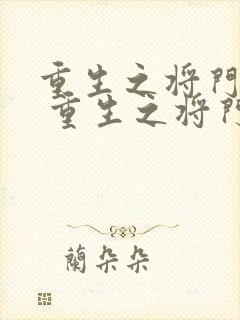 重生之将門
重生之将門
蘭朵朵